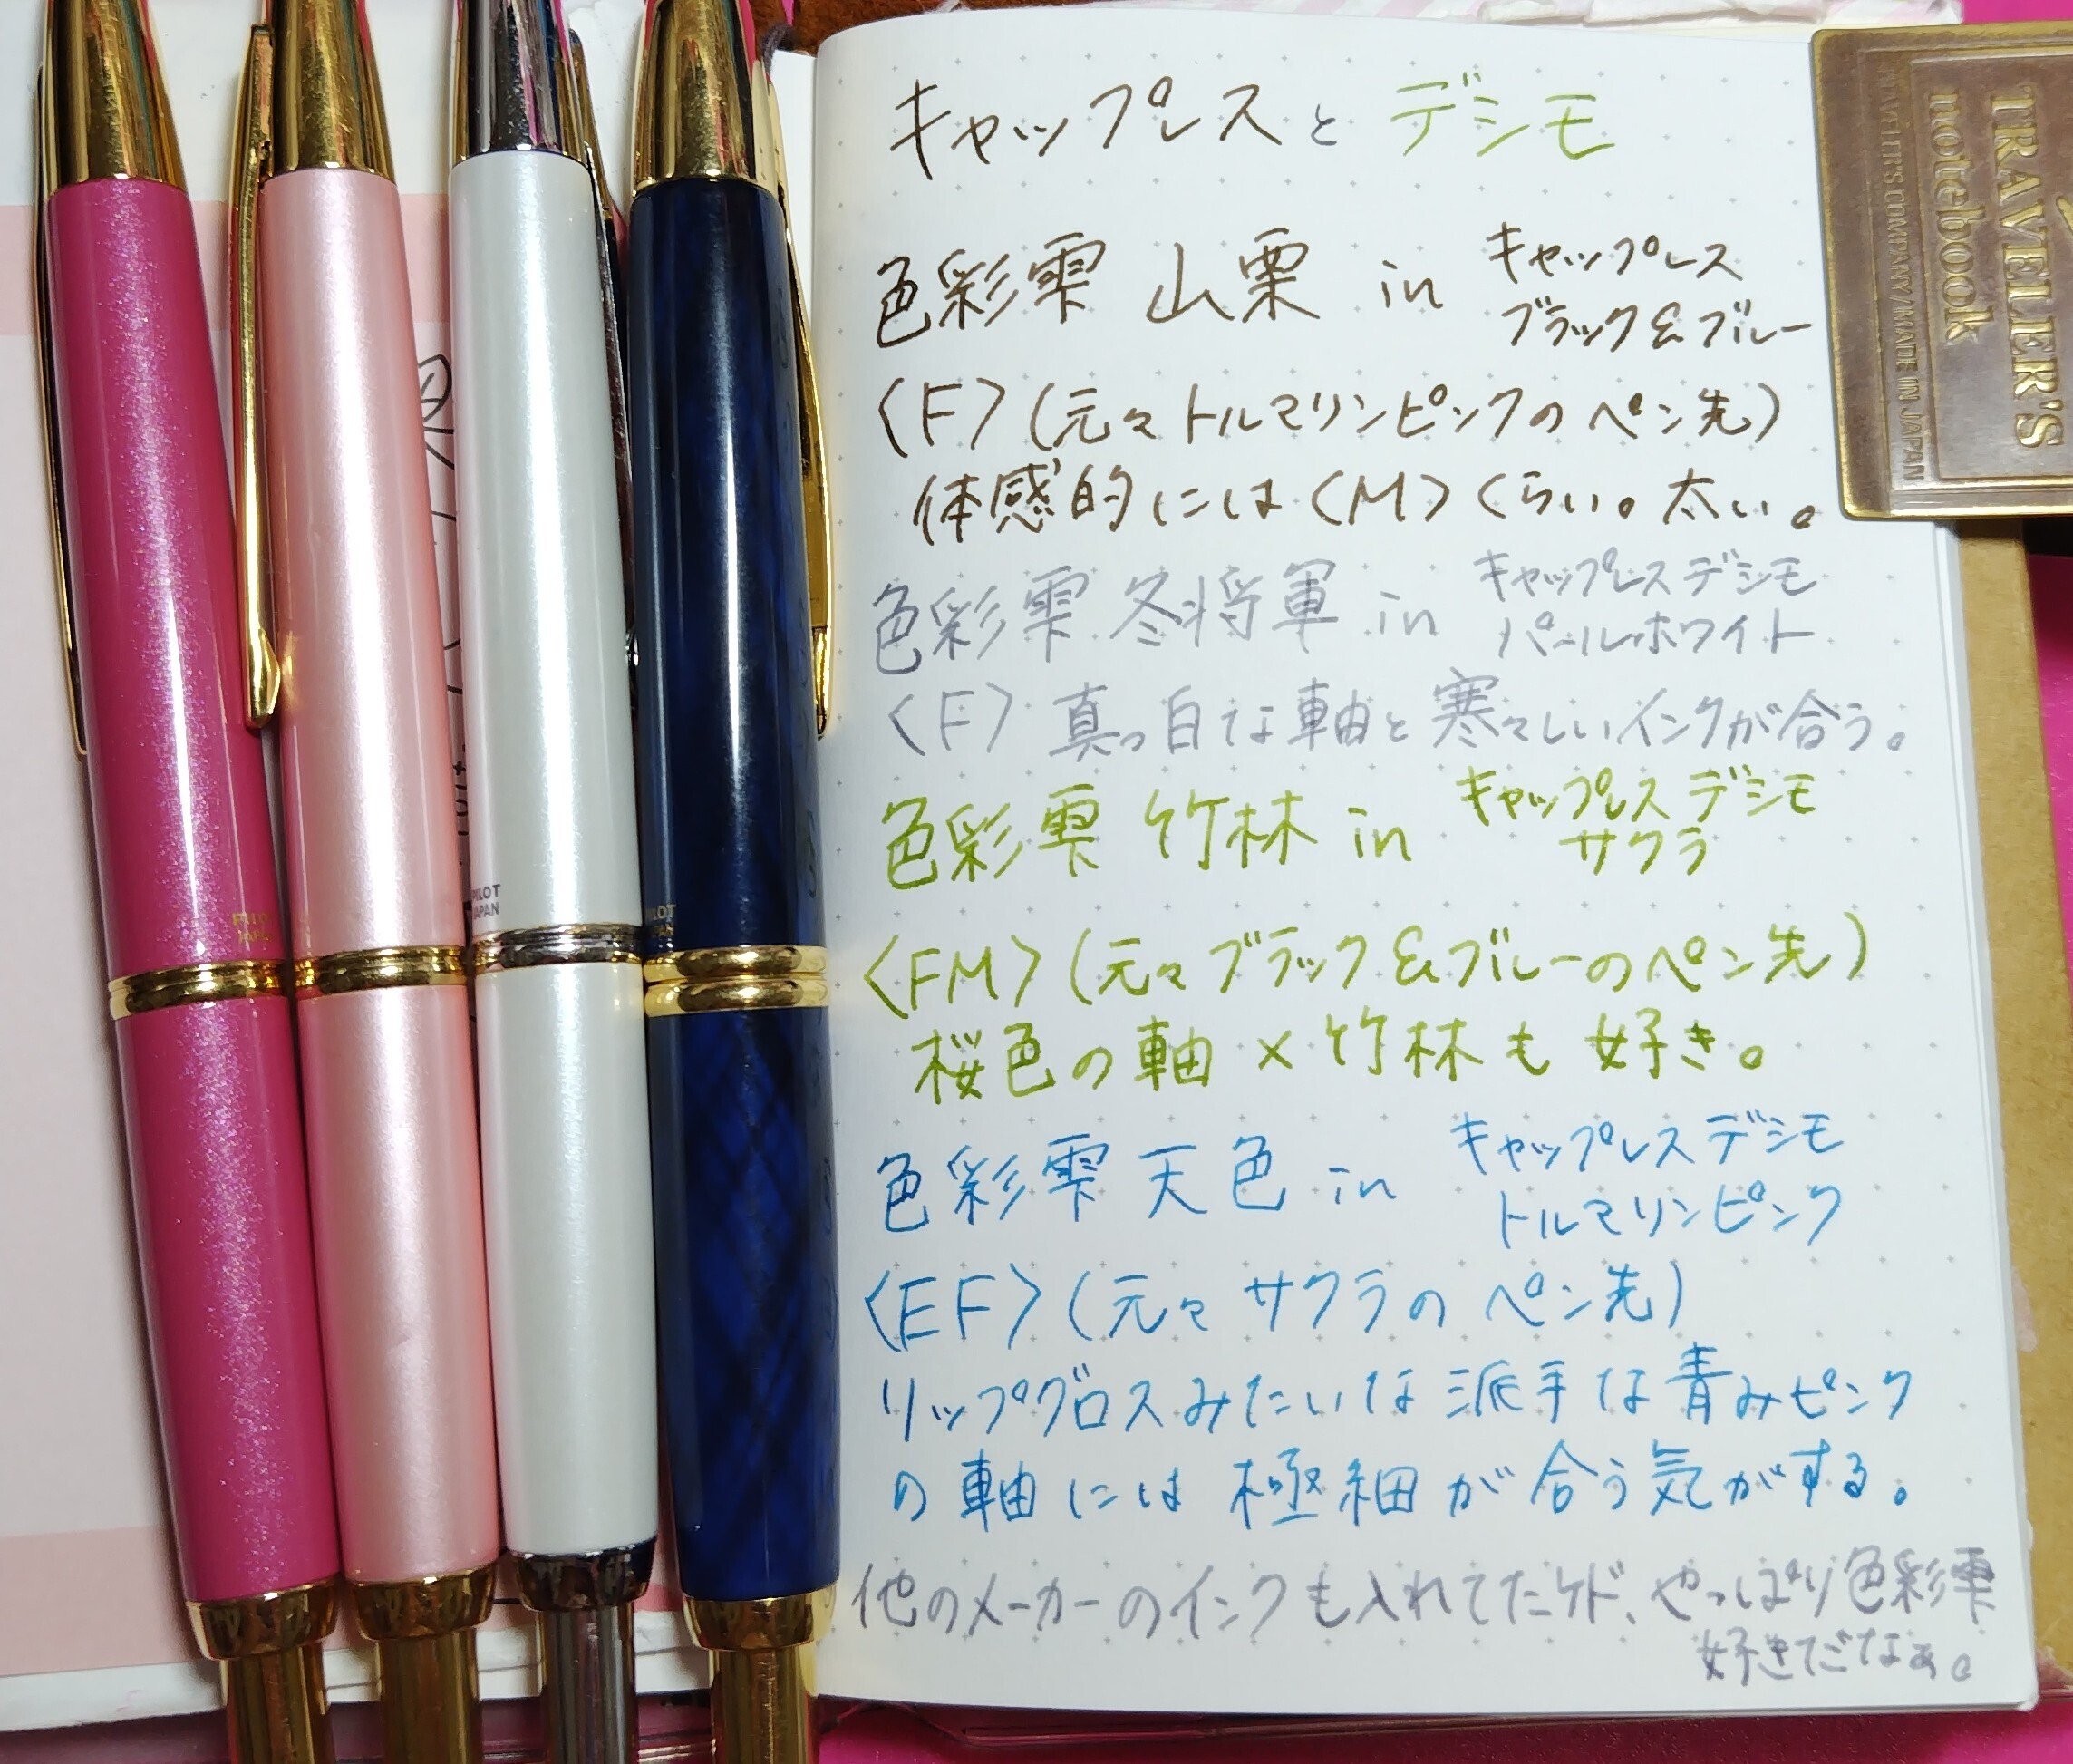 キャップレスとデシモ
色彩雫 山栗 in キャップレス
ブラック&ブルー
〈F〉(元々トルマリンピンクのペン先)
体感的には〈M〉くらい。太い。
色彩雫 冬将軍 in キャップレスデシモ
パールホワイト
〈F〉真っ白な軸と寒々しいインクが合う。
色彩雫 竹林 in キャップレスデシモ
サクラ
〈FM〉(元々ブラック&ブルーのペン先)
桜色の軸×竹林も好き。
色彩雫 天色 in キャップレスデシモ
トルマリンピンク
〈EF〉(元々サクラのペン先)
リップグロスみたいな派手な青みピンク
の軸には極細が合う気がする。
他のメーカーのインクも入れてたケド、やっぱり色彩雫
好きだなぁ。
TRAVELER'S
notebook
TRAVELER'S COMPANY/MADE IN JAPAN
PILOT
JAPAN
PILOT
JAPAN
PILOT